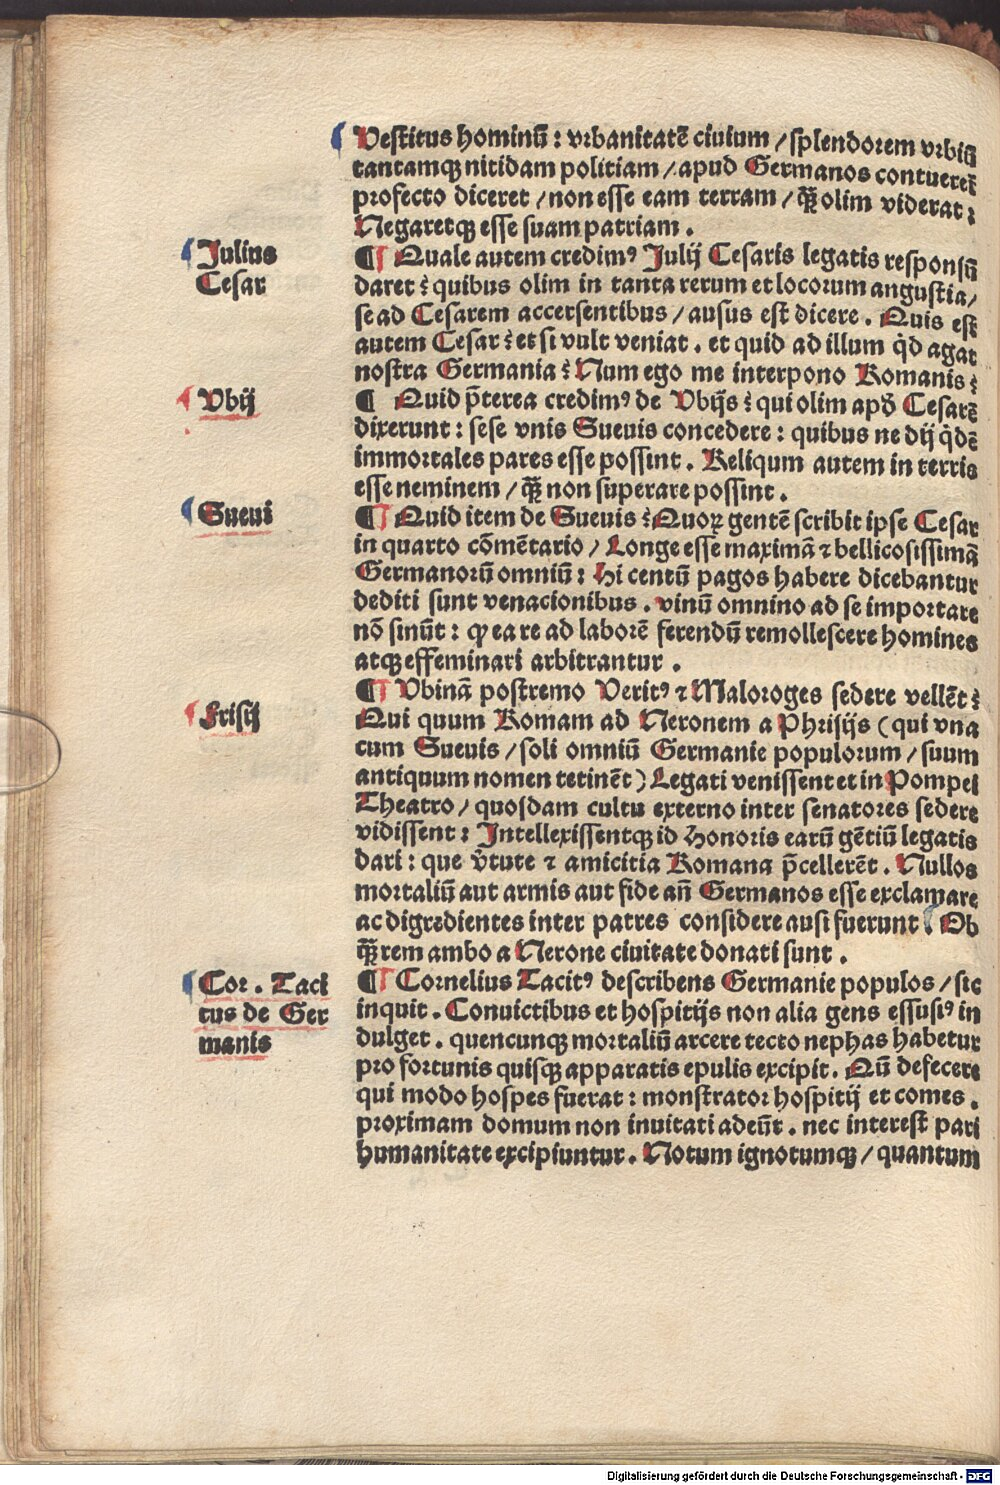 Vestitus hominū : vrbanitatē ciuium / splendorem vrbiū
tantamqꝫ nitidam politiam / apud Germanos contueret᷑
profecto diceret / non esse eam terram / quā olim viderat :
Negaretqꝫ esse suam patriam .
Julius
Cesar
¶ Quale autem credimꝰ Julij Cesaris legatis responsū
daret : quibus olim in tanta rerum et locorum angustia /
se ad Cesarem accersentibus / ausus est dicere . Quis est
autem Cesar : et si vult veniat . et quid ad illum q̇d agat
nostra Germania : Num ego me interpono Romanis :
Vbij
¶ Quid p̄terea credimꝰ de Vbijs : qui olim apd̓ Cesarē
dixerunt : sese vnis Sueuis concedere : quibus ne dij q̇dē
immortales pares esse possint . Reliqum autem in terris
esse neminem / quē non superare possint .
Sueui
¶ Quid item de Sueuis : Quoꝝ gentē scribit ipse Cesar
in quarto cōmētario / Longe esse maximā ⁊ bellicosissimā
Germanorū omniū : Hi centū pagos habere dicebantur
dediti sunt venacionibus . vinū omnino ad se importare
nō sinūt : ꝙ ea re ad laborē ferendū remollescere homines
atqꝫ effeminari arbitrantur .
Frisij
¶ Vbinā postremo Veritꝰ ⁊ Maloroges sedere vellēt :
Qui quum Romam ad Neronem a Phrisijs ( qui vna
cum Sueuis / soli omniū Germanie populorum / suum
antiquum nomen tetinēt ) Legati venissent et in Pompei
Theatro / quosdam cultu externo inter senatores sedere
vidissent : Intellexissentqꝫ id Honoris earū gētiū legatis
dari : que v̓tute ⁊ amicitia Romana p̄cellerēt . Nullos
mortaliū aut armis aut fide an̄ Germanos esse exclamare
ac digredientes inter patres considere ausi fuerunt Ob
quā rem ambo a Nerone ciuitate donati sunt .
Cor . Taci
tus de Ger
manis
¶ Cornelius Tacitꝰ describens Germanie populos / sic
inquit . Conuictibus et hospitijs non alia gens effusiꝰ in
dulget . quencunqꝫ mortaliū arcere tecto nephas habetur
pro fortunis quisqꝫ apparatis epulis excipit . Qū defecere
qui modo hospes fuerat : monstrator hospitij et comes .
proximam domum non inuitati adeūt . nec interest pari
humanitate excipiuntur . Notum ignotumqꝫ / quantum
Digitalisierung gefördert durch die Deutsche Forschungsgemeinschaft - DFG